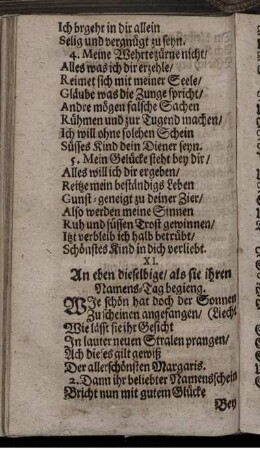 Ich brgehr in dir allein
Selig und vergnügt zu seyn.
4. Meine Wehrte zürne nicht/
Alles was ich dir erzehle/
Reimet sich mit meiner Seele/
Gläube was die Zunge spricht/
Andre mögen falsche Sachen
Rühmen und zur Tugend machen/
Ich will ohne solchen Schein
Süsses Kind dein Diener seyn.
5. Mein Gelücke steht bey dir/
Alles will ich dir ergeben/
Reitze mein beständigs Leben
Gunst-geneigt zu deiner Zier/
Also werden meine Sinnen
Ruh und süssen Trost gewinnen/
Itzt verbleib ich halb betrübt/
Schönstes Kind in dich verliebt.
XI.
An eben dieselbige/ als sie ihren
Namens-Tag begieng.
WJe schön hat doch der Sonnen
Zu scheinen angefangen/ (Liecht
Wie lässt sie ihr Gesicht
In lauter neuen Stralen prangen/
Ach dieses gilt gewiß
Der allerschönsten Margaris.
2. Dann ihr beliebter Namensschein
Bricht nun mit gutem Glücke
Bey